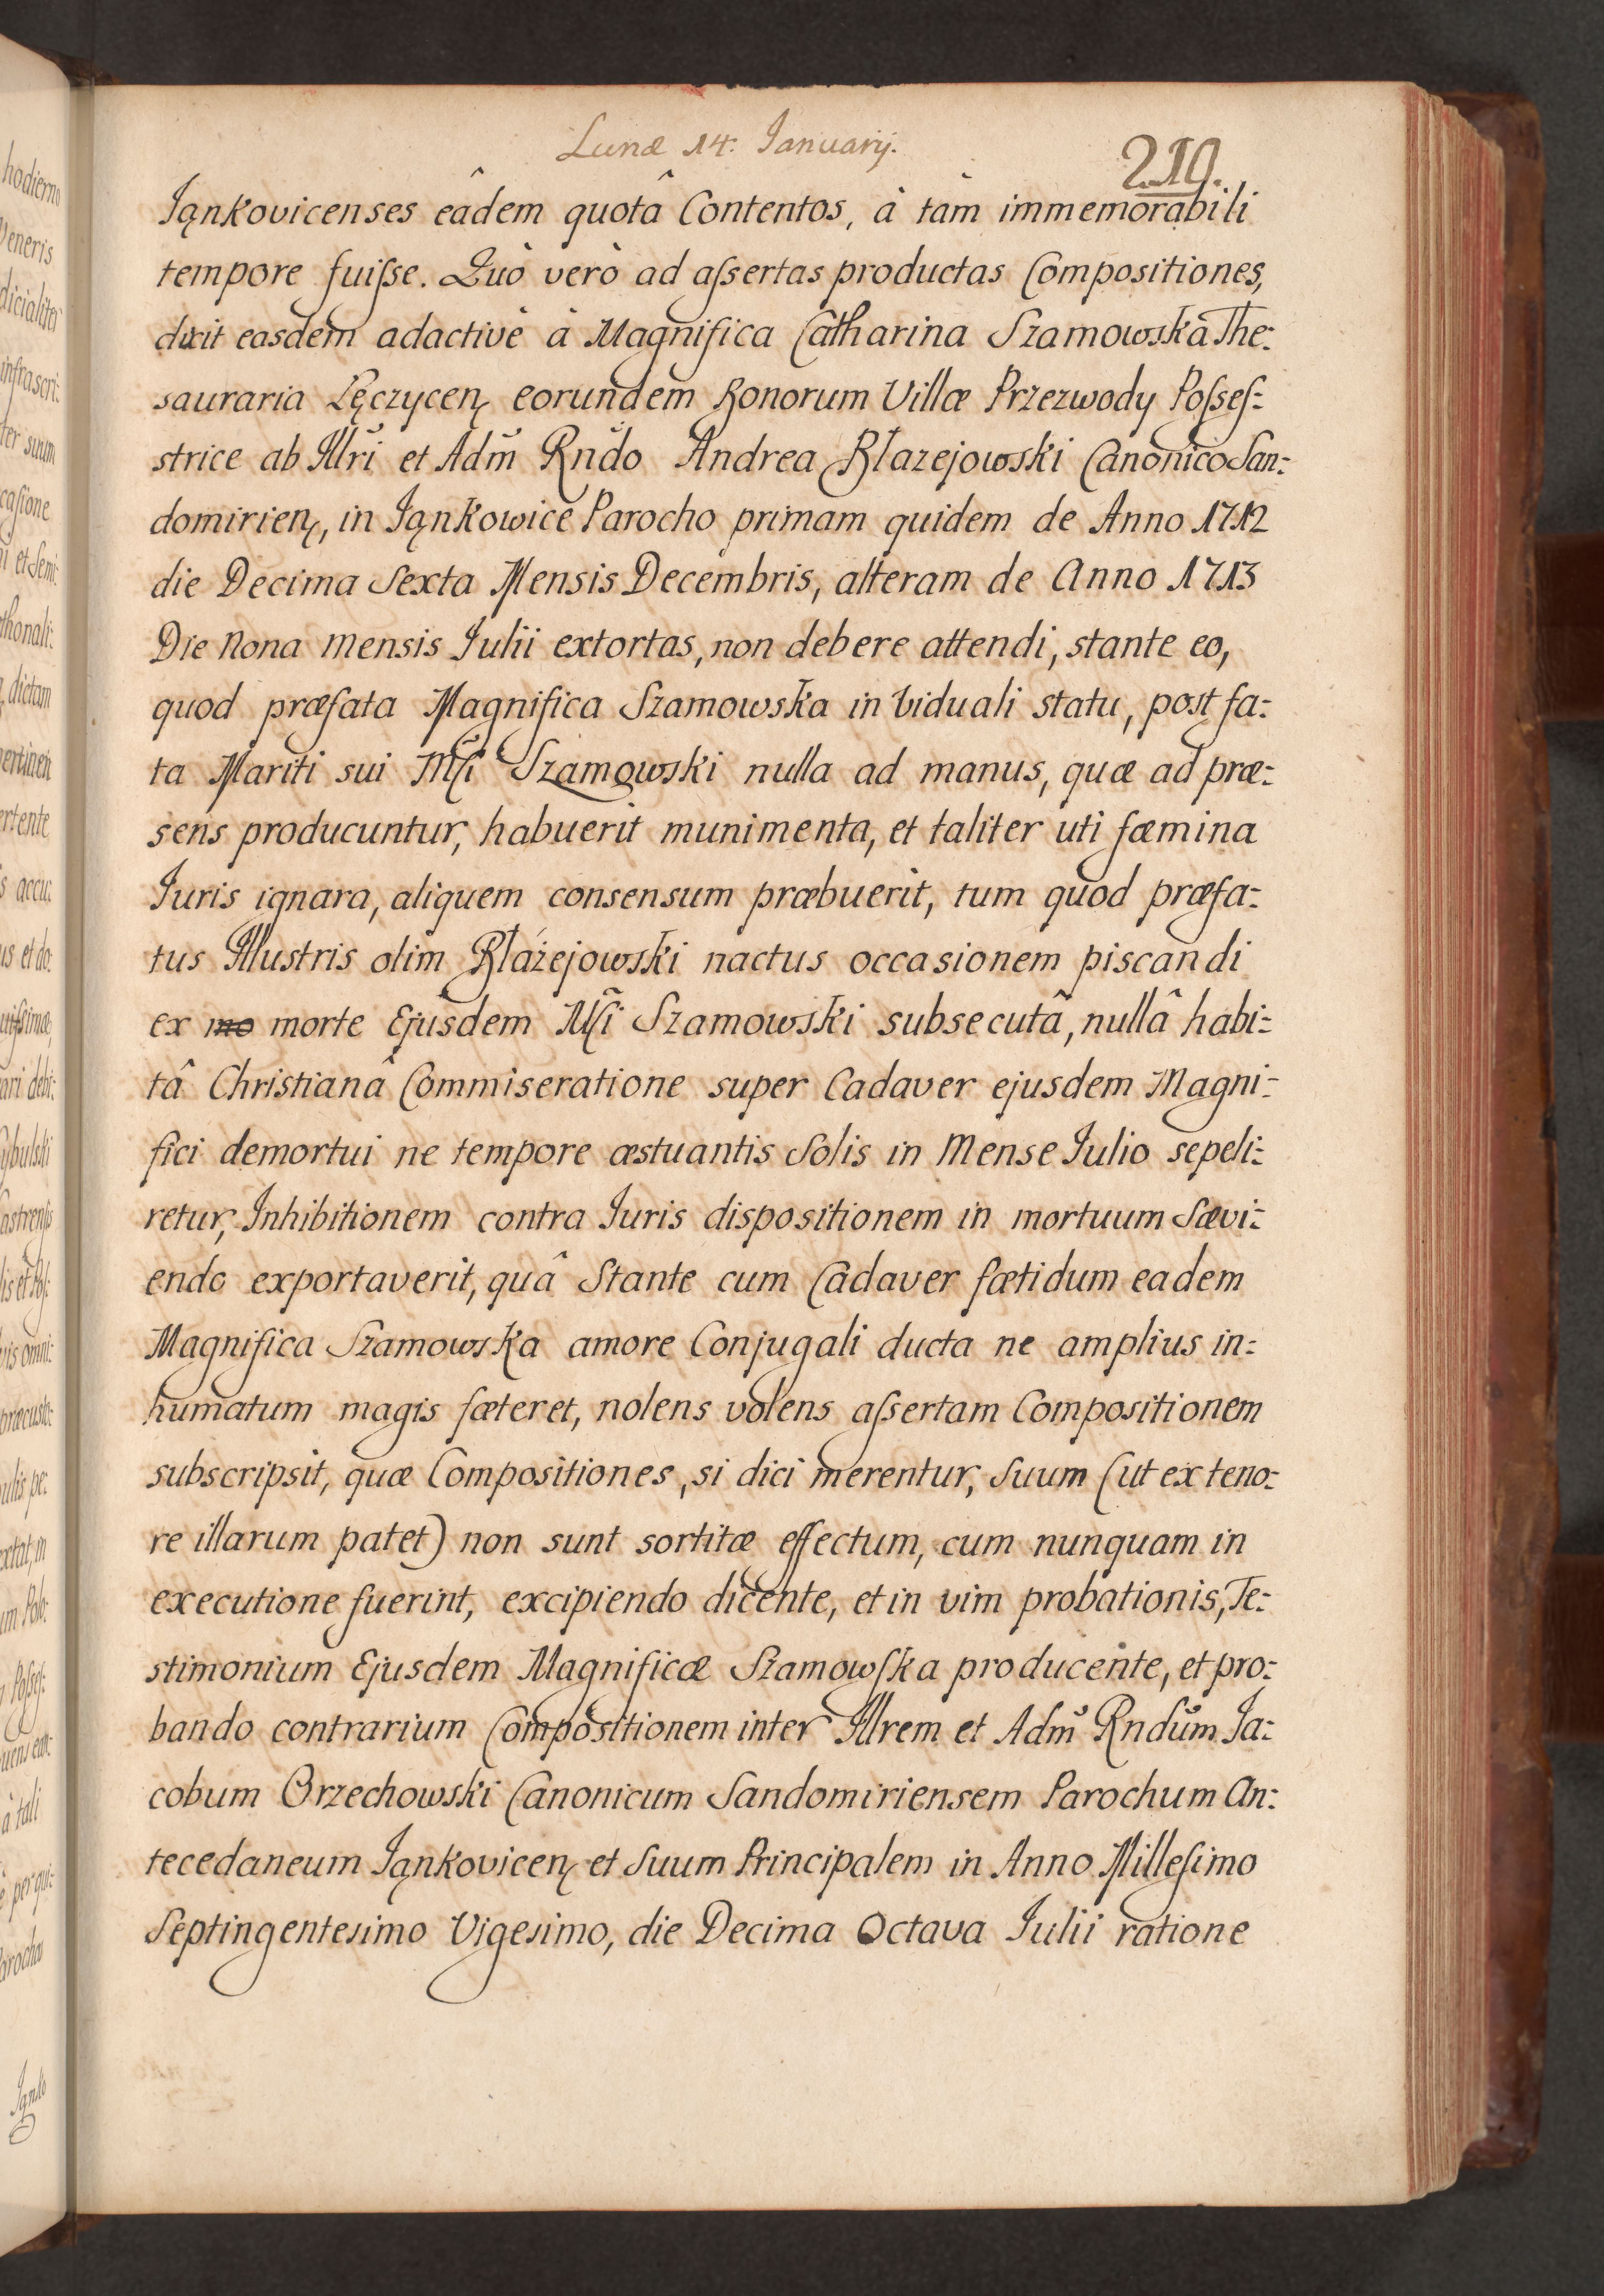 Lunæ 14. Januarij.
219.
Jąnkovicenses eâdem quotâ Contentos, à tàm immemorabili
tempore fuiſse. Quò verò ad aſsertas productas Compositiones,
dixit easdem adactivè à Magnifica Catharina Szamowska The:
sauraria Lęczycen, eorundem Bonorum Villæ Przezwody Poſseſ:
strice ab Illri et Adm Rndo Andrea Błazejowski Canonico San:
domirien, in Jąnkowice Parocho primam quidem de Anno 1712
die Decima Sexta Mensis Decembris, alteram de Anno 1713
Die Nona Mensis Julii extortas, non debere attendi, stante eo,
quod præfata Magnifica Szamowska in Viduali statu, post fa:
ta Mariti sui Mfi Szamowski nulla ad manus, quæ ad præ:
sens producuntur, habuerit munimenta, et taliter uti fœmina
Juris ignara, aliquem consensum præbuerit, tum quod præfa:
tus Illustris olim Błażejowski nactus occasionem piscandi
ex mo morte Ejusdem Mfi Szamowski subsecutâ, nullâ habi:
tâ Christianâ Commiseratione super Cadaver ejusdem Magni:
fici demortui ne tempore æstuantis Solis in Mense Julio sepeli:
retur, Inhibitionem contra Juris dispositionem in mortuum Sævi:
endo exportaverit, quâ Stante cum Cadaver fœtidum eadem
Magnifica Szamowska amore Conjugali ducta ne amplius in:
humatum magis fœteret, nolens volens aſsertam Compositionem
subscripsit, quæ Compositiones, si dici merentur, Suum (ut ex teno:
re illarum patet) non sunt sortitæ effectum, cum nunquam in
executione fuerint, excipiendo dicente, et in vim probationis, Te:
stimonium Ejusdem Magnificæ Szamowſka producente, et pro:
bando contrarium Compositionem inter Illrem et Adm Rndum Ja:
cobum Orzechowski Canonicum Sandomiriensem Parochum An:
tecedaneum Jąnkovicen et Suum Principalem in Anno Milleſimo
Septingentesimo Vigesimo, die Decima Octava Julii ratione